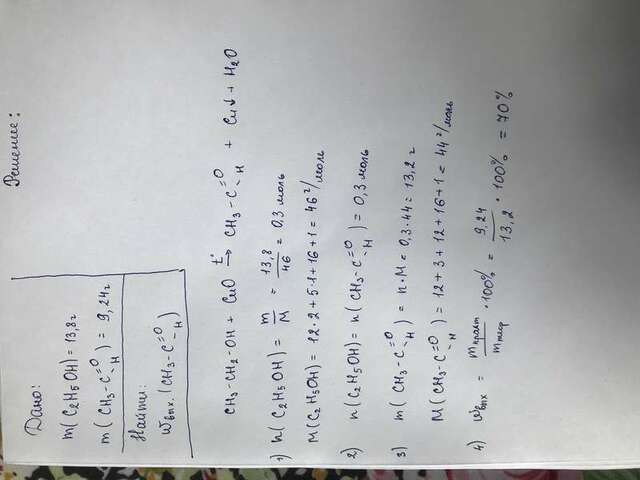 Решение:
Дано:
m(C2H5OH) = 13,8г
m(CH3-C=O-H) = 9,24г
Найти:
Wвых. (CH3-C=O-H)
CH3-CH2-OH + CuO t° → CH3-C=O-H + Cu↓ + H2O
1) n(C2H5OH) = m/M = 13,8/46 = 0,3 моль
M(C2H5OH) = 12·2+5·1+16+1 = 46 г/моль
2) n(C2H5OH) = n(CH3-C=O-H) = 0,3 моль
3) m(CH3-C=O-H) = n·M = 0,3·44 = 13,2 г
M(CH3-C=O-H) = 12+3+12+16+1 = 44 г/моль
4) Wвых = mпракт/mтеор · 100% = 9,24/13,2 · 100% = 70%